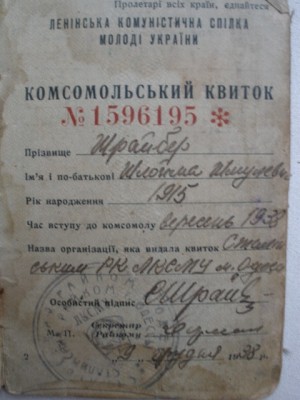 Пролетарі всіх країн, єднайтеся
ЛЕНІНСЬКА КОМУНІСТИЧНА СПІЛКА
МОЛОДІ УКРАЇНИ
КОМСОМОЛЬСЬКИЙ КВИТОК
№ 1596195 *
Прізвище Шрайбер
Ім'я і по-батькові Шлойма Шмулев
Рік народження 1915
Час вступу до комсомолу вересень 1938
Назва організації, яка видала квиток Сталін
ським РК ЛКСМУ м. Одеса
Особистий підпис СШрайб
М. П. Секретар
Райкому
"9" грудня 1938 р.